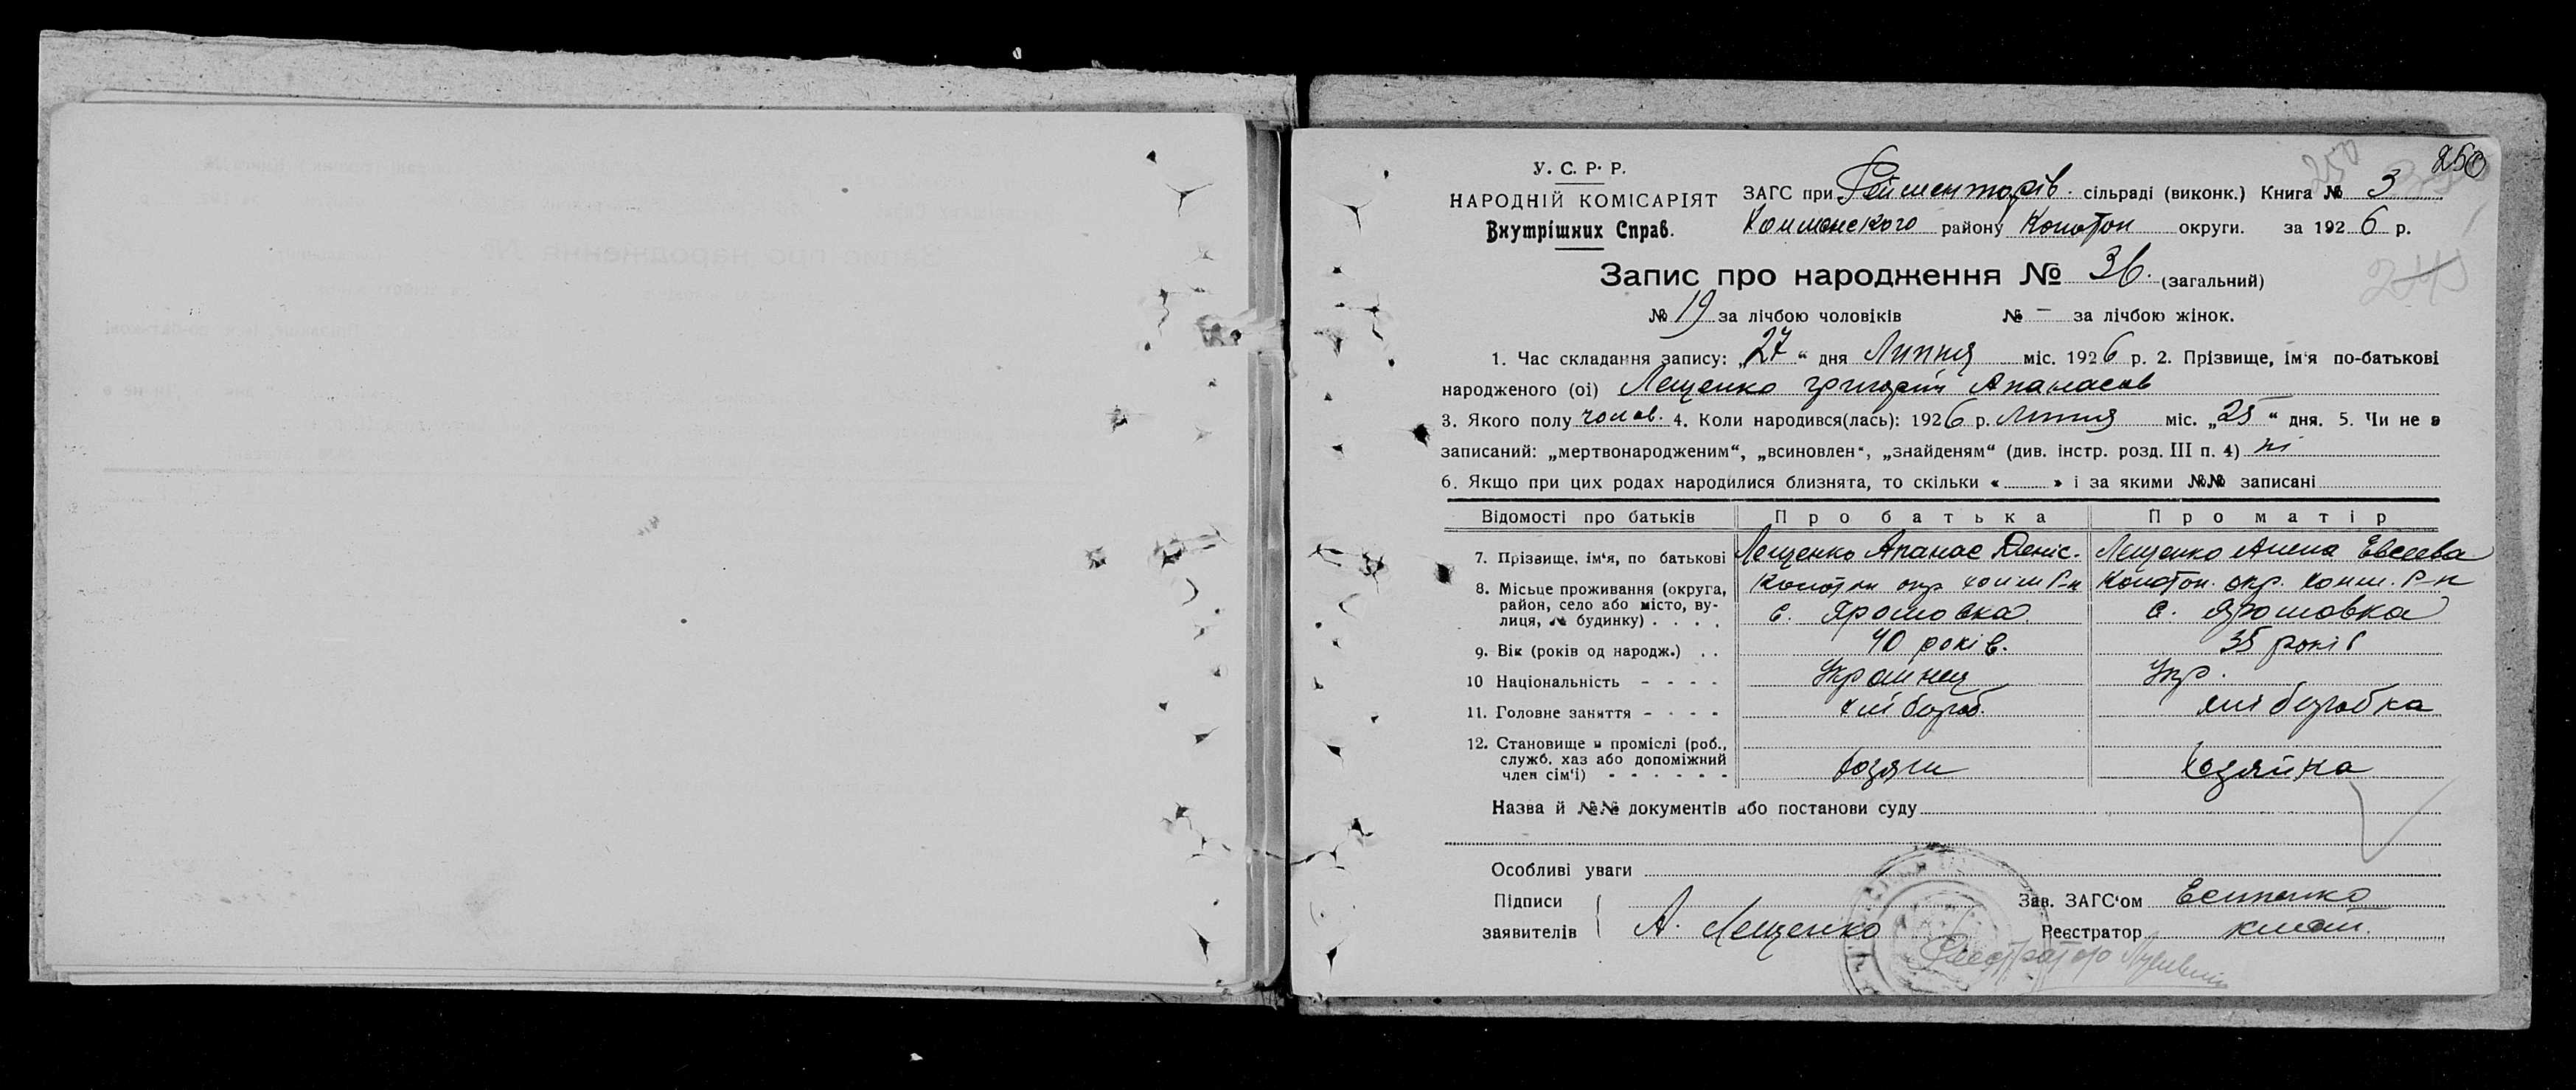 250
250
У. С. Р. Р.
НАРОДНІЙ КОМІСАРІЯТ
Внутрішних Справ.
ЗАГС при Рейментарів. сільраді (виконк.) Книга № 3
району Конотоп округи. за 1926 р.
Запис про народження № 36. (загальний)
245
№ 19 за лічбою чоловіків № — за лічбою жінок.
1. Час складання запису: „27“ дня Липня міс. 1926 р. 2. Прізвище, ім'я по-батькові
народженого (ої) Лещенко Григорій Апанасов
3. Якого полу чолов. 4. Коли народився(лась): 1926 р. Липня міс. „25“ дня. 5. Чи не є
записаний: „мертвонародженим“, „всиновлен“, „знайденям“ (див. інстр. розд. III п. 4) ні
6. Якщо при цих родах народилися близнята, то скільки « » і за якими №№ записані
Відомості про батьків Про батька Про матір
7. Прізвище, ім'я, по батькові Лещенко Апанас Деніс. Лещенко Евсеева
8. Місьце проживання (округа, район, село або місто, вулиця, № будинку)
Конотоп окр. Р-н Конотоп. окр. Р-н
с. Ярошовка с. Ярошовка
9. Вік (років од народж.) 40 років. 35 років
10 Національність Українец Укр.
11. Головне заняття хлібороб. хліборобка
12. Становище в проміслі (роб., служб. хаз або допоміжний член сім'ї) хозяин хозяйка
Назва й №№ документів або постанови суду
Особливі уваги
Підписи заявителів А. Лещенко
Зав. ЗАГС'ом
Реєстратор